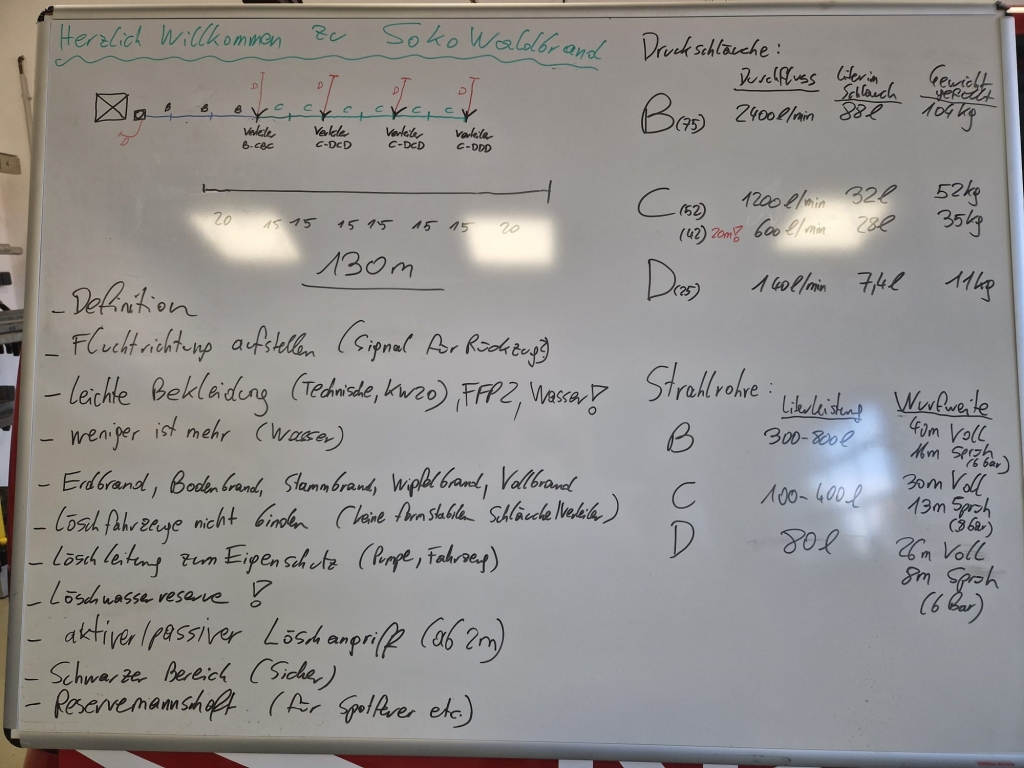 Herzlich Willkommen zu Soko Waldbrand
D D D D
B B B C C C C C C
D
Verteiler Verteiler Verteiler Verteiler
B-CBC C-DCD C-DCD C-DDD
20 15 15 15 15 15 15 20
130m
- Definition
- Fluchtrichtung aufstellen (Signal für Rückzug?)
- leichte Bekleidung (Technische, KWZO), FFP2, Wasser!
- weniger ist mehr (Wasser)
- Erdbrand, Bodenbrand, Stammbrand, Wipfelbrand, Vollbrand
- Löschfahrzeuge nicht binden (keine formstabilen Schläuche/Verteiler)
- Löschleitung zum Eigenschutz (Pumpe, Fahrzeug)
- Löschwasserreserve !
- aktiver/passiver Löschangriff (ab 2m)
- Schwarzer Bereich (Sicher)
- Reservemannschaft (für Spotfeuer etc.)
Druckschläuche:
Durchfluss Liter im Schlauch Gewicht gefüllt
B (75) 2400 l/min 88l 104kg
C (52) 1200 l/min 32l 52kg
(42) 20m! 600 l/min 28l 35kg
D (25) 140 l/min 7,4l 11kg
Strahlrohre:
Literleistung Wurfweite
B 300-800l 40m Voll
16m Sprüh
(6 bar)
C 100-400l 30m Voll
13m Sprüh
(8bar)
D 80l 26m Voll
8m Sprüh
(6 Bar)